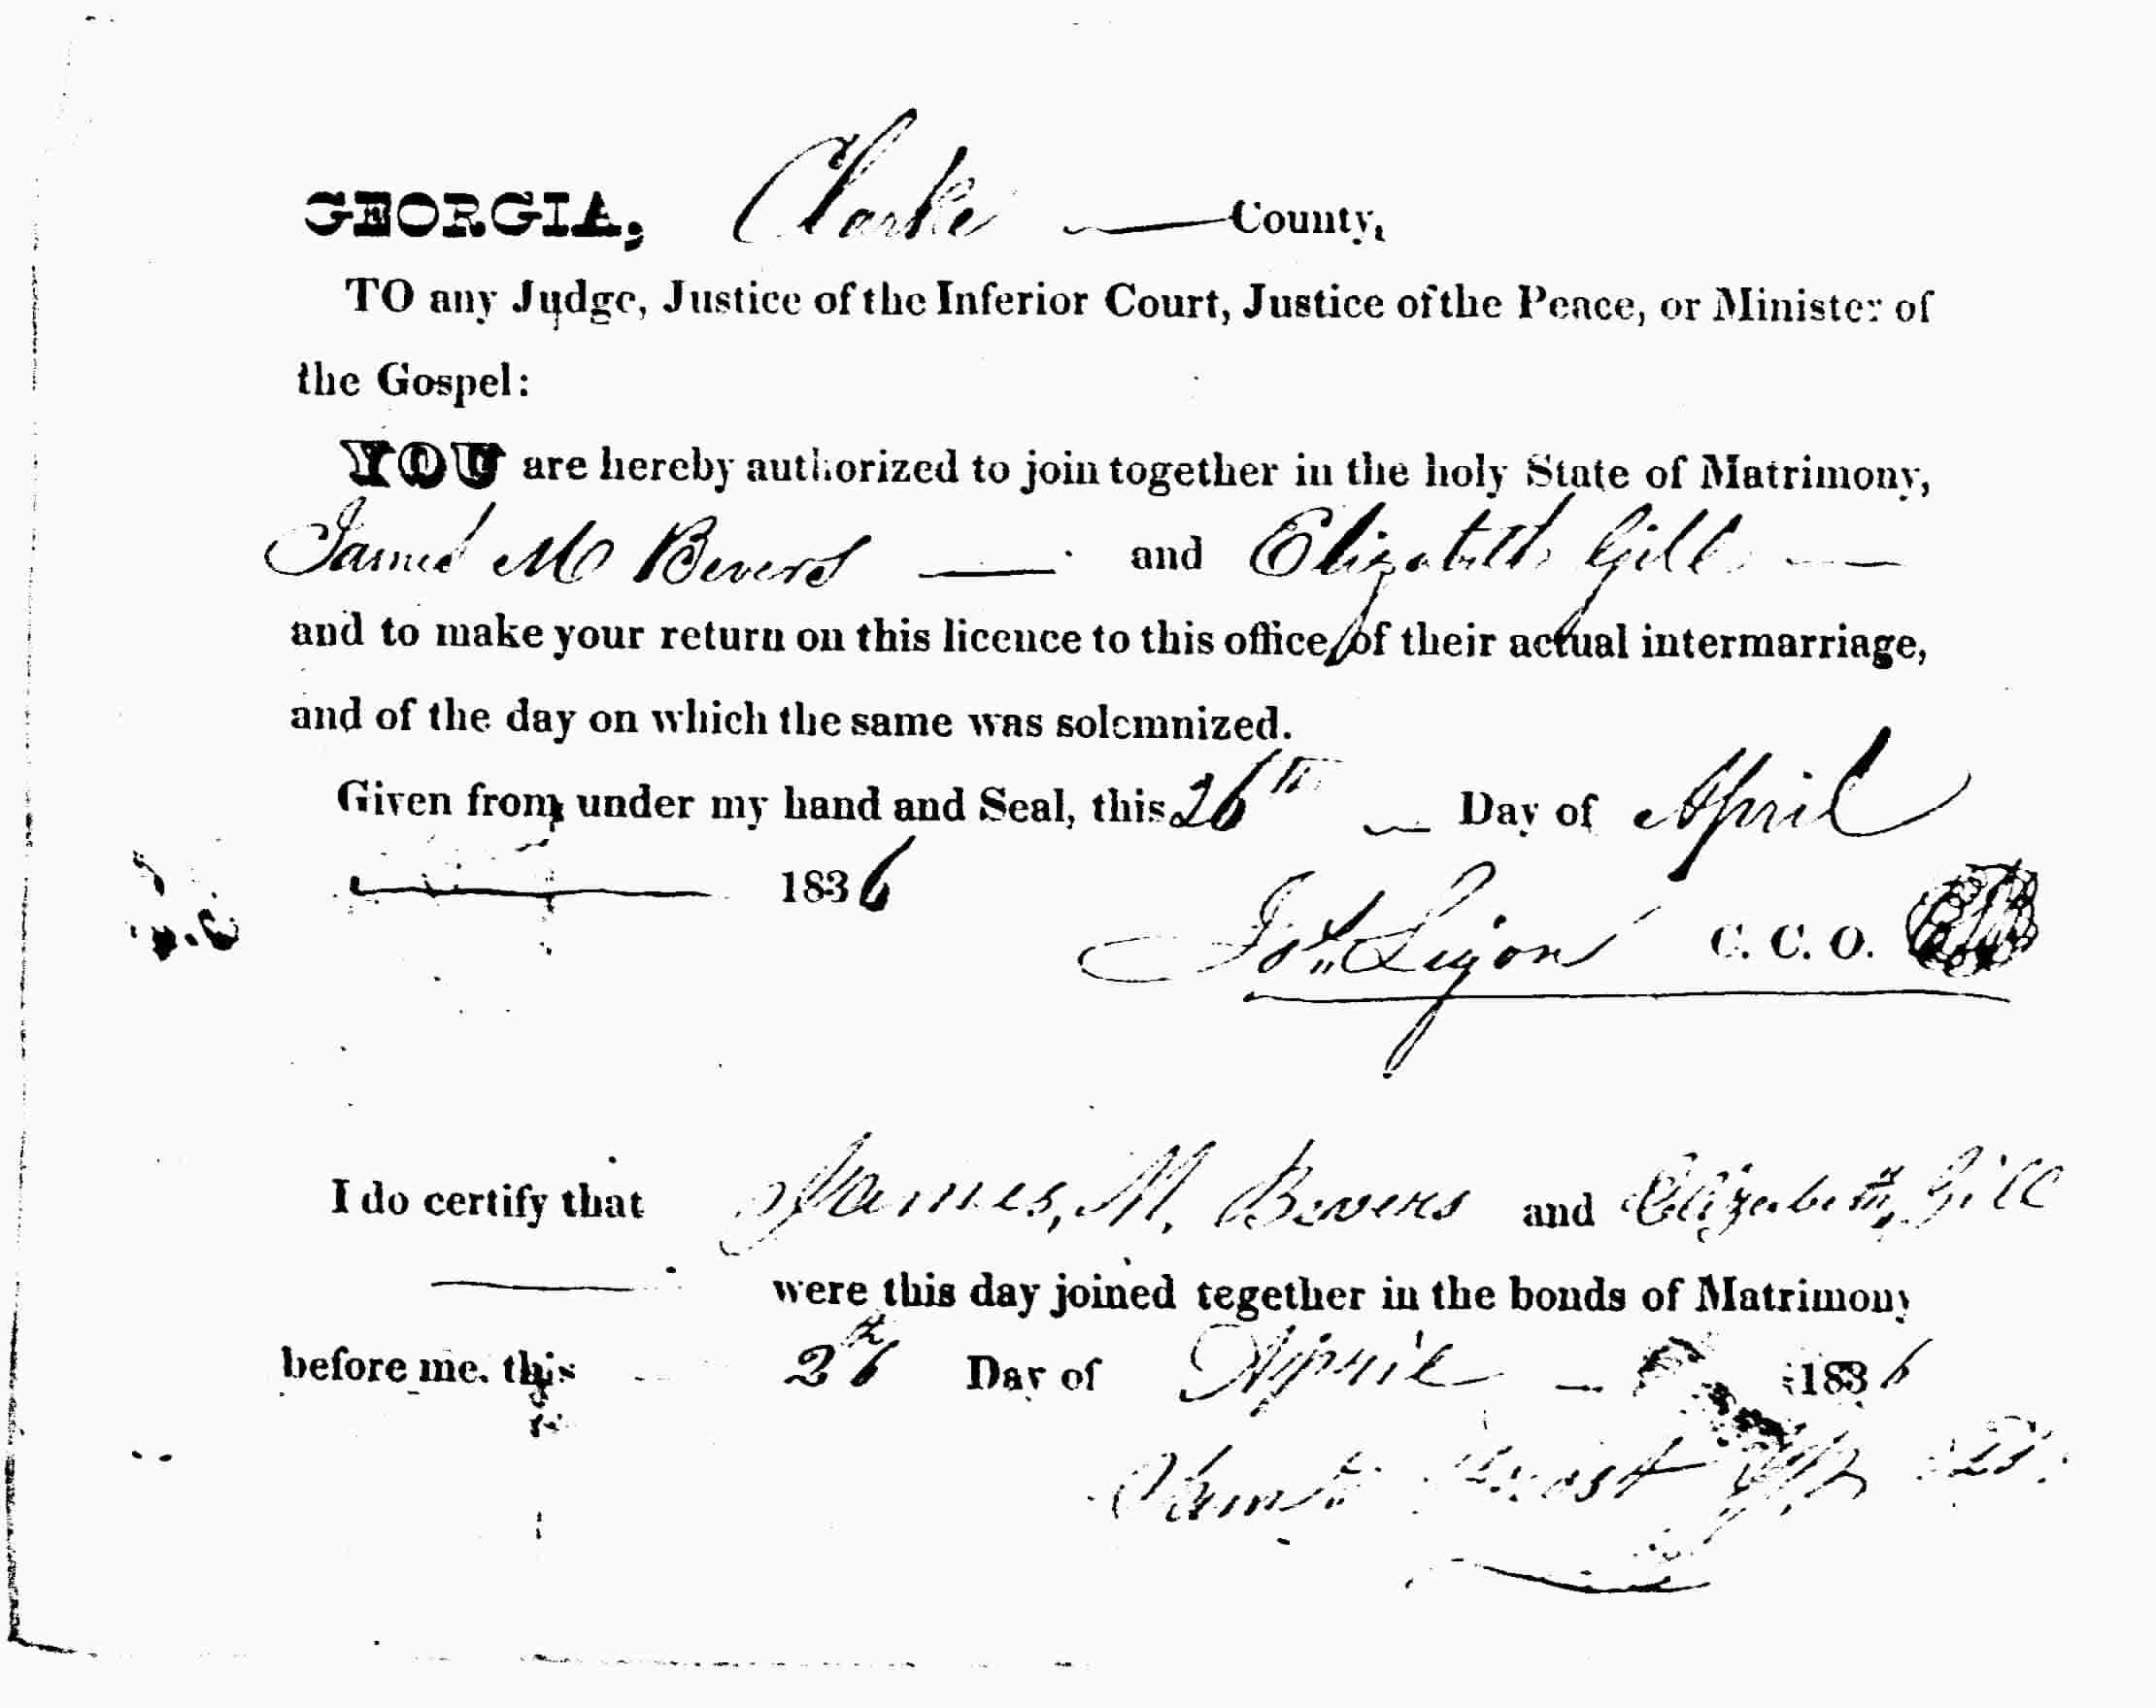 GEORGIA, Clarke County,
TO any Judge, Justice of the Inferior Court, Justice of the Peace, or Minister of
the Gospel:
YOU are hereby authorized to join together in the holy State of Matrimony,
James M Bevers and Elizabeth Gill
and to make your return on this licence to this office, of their actual intermarriage,
and of the day on which the same was solemnized.
Given from under my hand and Seal, this 26th Day of April
1836
Jos. Ligon C. C. O.
I do certify that James, M, Bevers and Elizabeth, Gill
were this day joined tegether in the bonds of Matrimony
before me. this 26 Day of April 1836
Saml. Frost